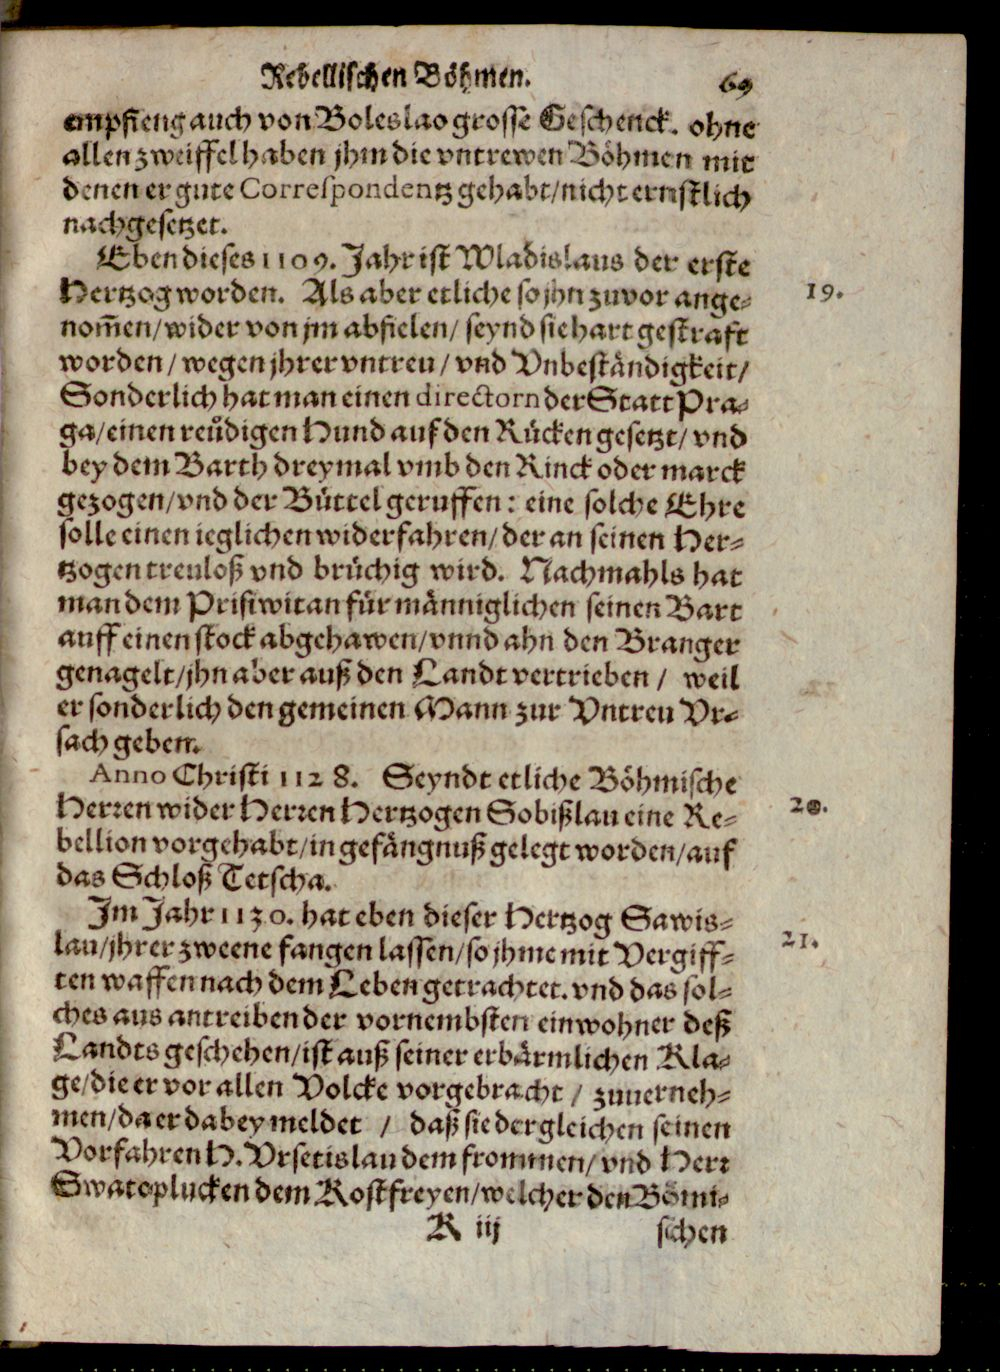 Rebellischen Böhmen. 69
empfieng auch von Boleslao grosse Geschenck. ohne
allen zweiffel haben jhm die vntrewen Böhmen mit
denen er gute Correspondentz gehabt/nicht ernstlich
nachgesetzet.
Eben dieses 1109. Jahr ist Wladislaus der erste
Hertzog worden. Als aber etliche so jhn zuvor ange-
nom̃en/wider von jm abfielen/ seynd sie hart gestraft
worden/wegen jhrer vntreu/vnd Vnbeständigkeit/
19.
Sonderlich hat man einen directorn der Statt Pra-
ga/einen reůdigen Hund auf den Rücken gesetzt/vnd
bey dem Barth dreymal vmb den Rinck oder marck
gezogen/vnd der Büttel geruffen: eine solche Ehre
solle einen ieglichen widerfahren/der an seinen Her-
tzogen treuloß vnd brüchig wird. Nachmahls hat
man dem Prisiwitan für männiglichen seinen Bart
auff einen stock abgehawen/vnnd ahn den Branger
genagelt/jhn aber auß den Landt vertrieben/ weil
er sonderlich den gemeinen Mann zur Vntreu Vr-
sach geben.
Anno Christi 1128. Seyndt etliche Böhmische
Herren wider Herren Hertzogen Sobißlau eine Re-
bellion vorgehabt/in gefängnuß gelegt worden/auf
das Schloß Tetscha.
20.
Im Jahr 1130. hat eben dieser Hertzog Sawis-
lau/jhrer zweene fangen lassen/so jhme mit Vergiff-
ten waffen nach dem Leben getrachtet. vnd das sol-
ches aus antreiben der vornembsten einwohner deß
Landts geschehen/ist auß seiner erbärmlichen Kla-
ge/die er vor allen Volcke vorgebracht/ zuuerneh-
men/da er dabey meldet / daß sie dergleichen seinen
Vorfahren H. Vrsetislau dem frommen/vnd Herr
Swatoplucken dem Rostfreyen/welcher den Bömi-
21.
K iij schen